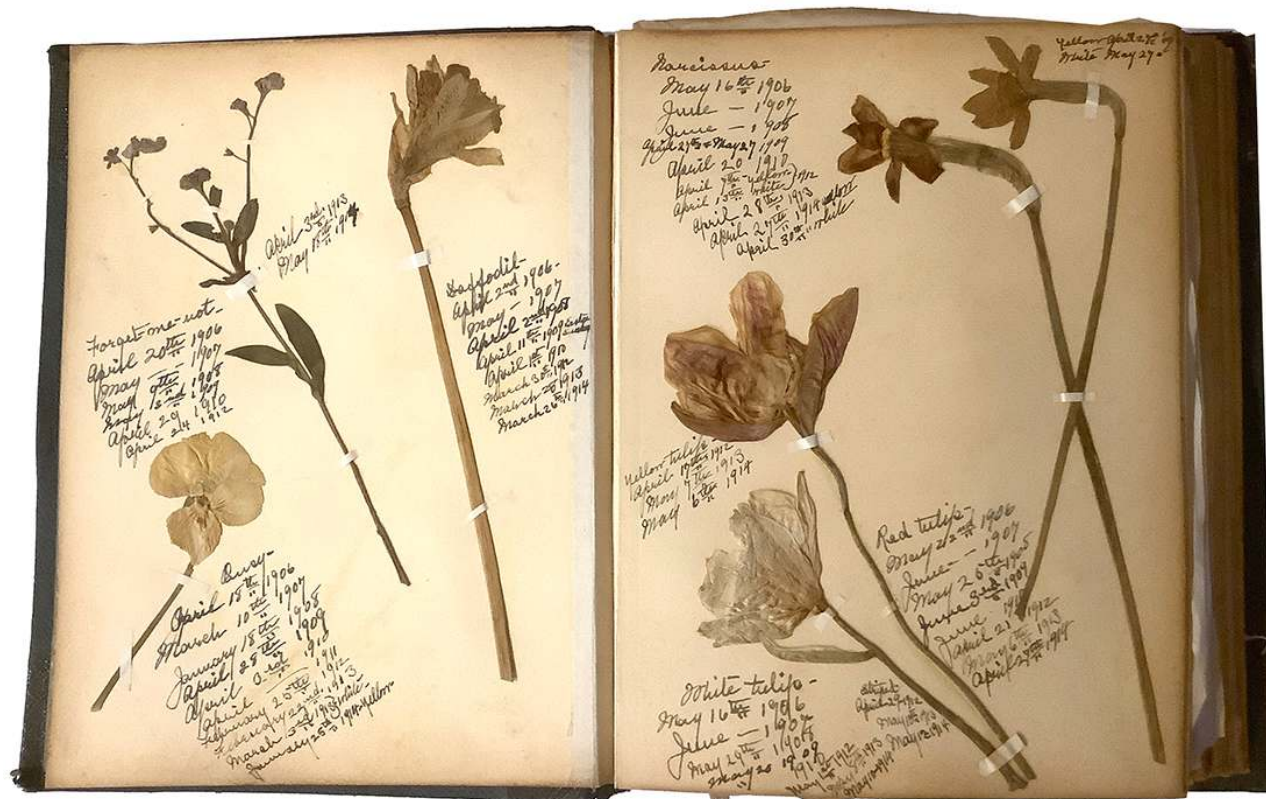 April 3rd 1913
May 15th 1914
Forget-me-not-
April 20th 1906
May — 1907
May 9th 1908
May 1909
April 29 1910
April 24 1912
Daffodil-
April 2nd 1906-
May — 1907
April 2nd 1908
April 11th 1909 Easter Sunday
April 1st 1910
March 30th
March 28 1913
March 26th 1914
April 18th 1906
March 10th 1907
January 18th 1908
April 28th 1909
April 3rd 1910
April — 1911
February 25th 1912
February 22nd, 1913
March 3rd 1913 white-
January 25th 1914-Yellow
Narcissus-
May 16th 1906
June — 1907
June — 1908
April 27th & May 27 1909
April 20 1910
April 9th-yellow
April 13th white 1912
April 28th 1913
April 27th 1914 yellow
April 30th " white
Yellow April 27th
White May 27
Yellow tulip-
April 19th 1912
May 7th 1913
May 6th 1914
Red tulip-
May 22nd 1906
June — 1907
May 25th 1908
June 3rd 1909
June 1910
April 21 1912
May 6th 1913
April 29th 1914
White tulip-
May 16th 1906
June — 1907
May 29th 1908
May 20 1909
1910
May 1st 1912
1913
May 10 1914
April 29 1912
May 1913
May 12 1914